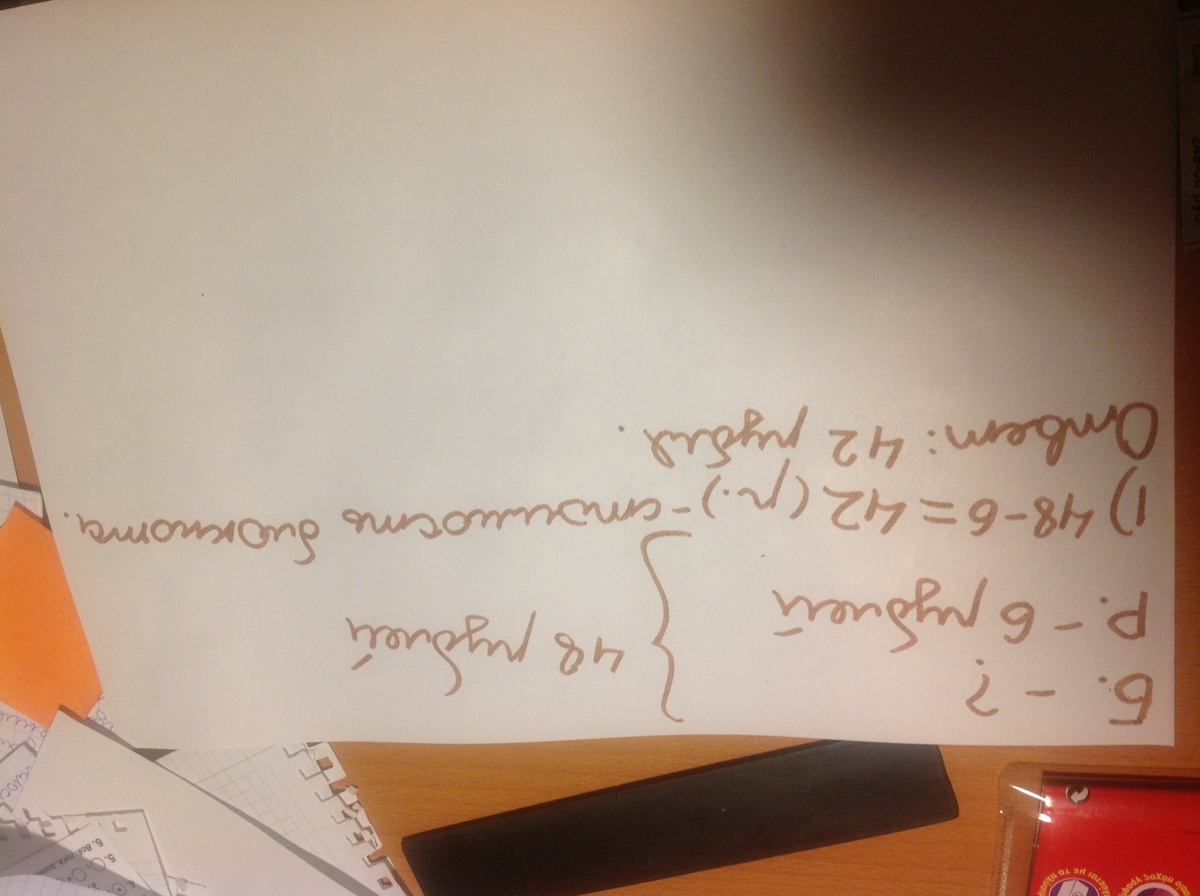 Б. - ?
Р. - 6 рублей
48 рублей
1) 48-6=42 (р.) - стоимость блокнота.
Ответ: 42 рубля.